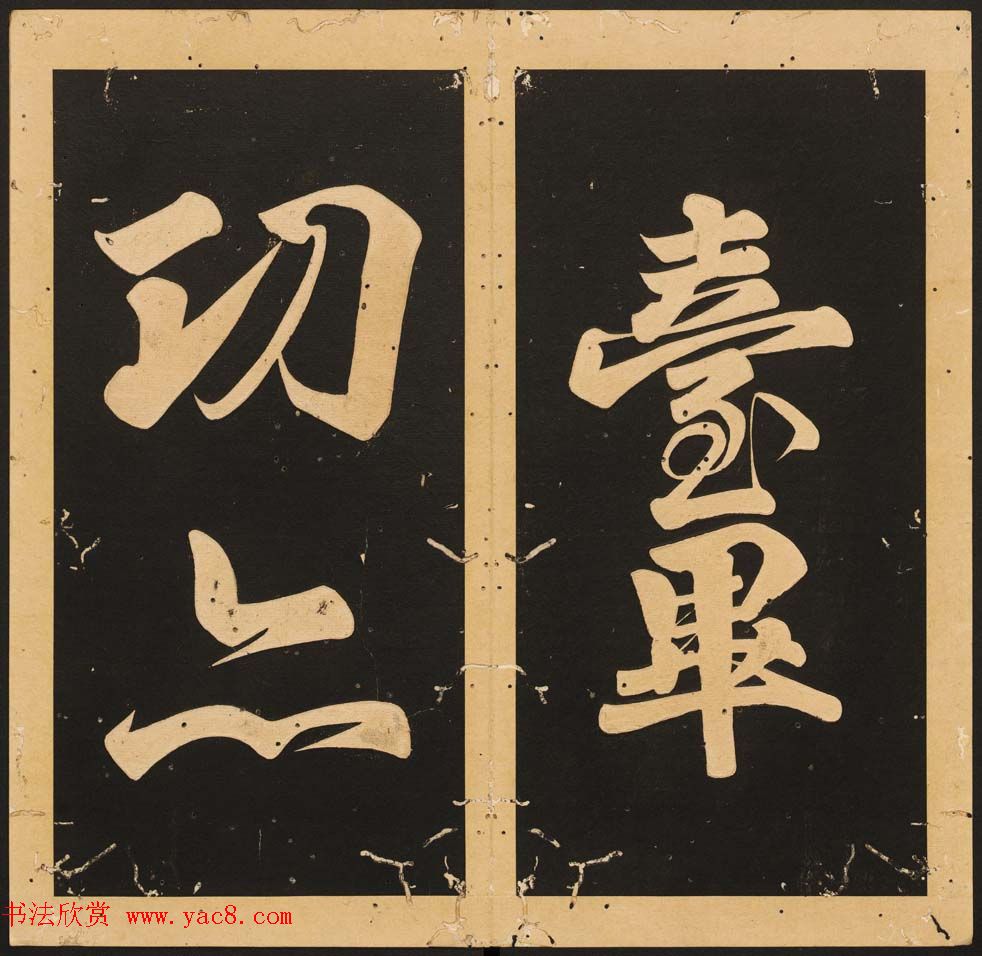 臺畢
功上
书法欣赏 www.yac8.com